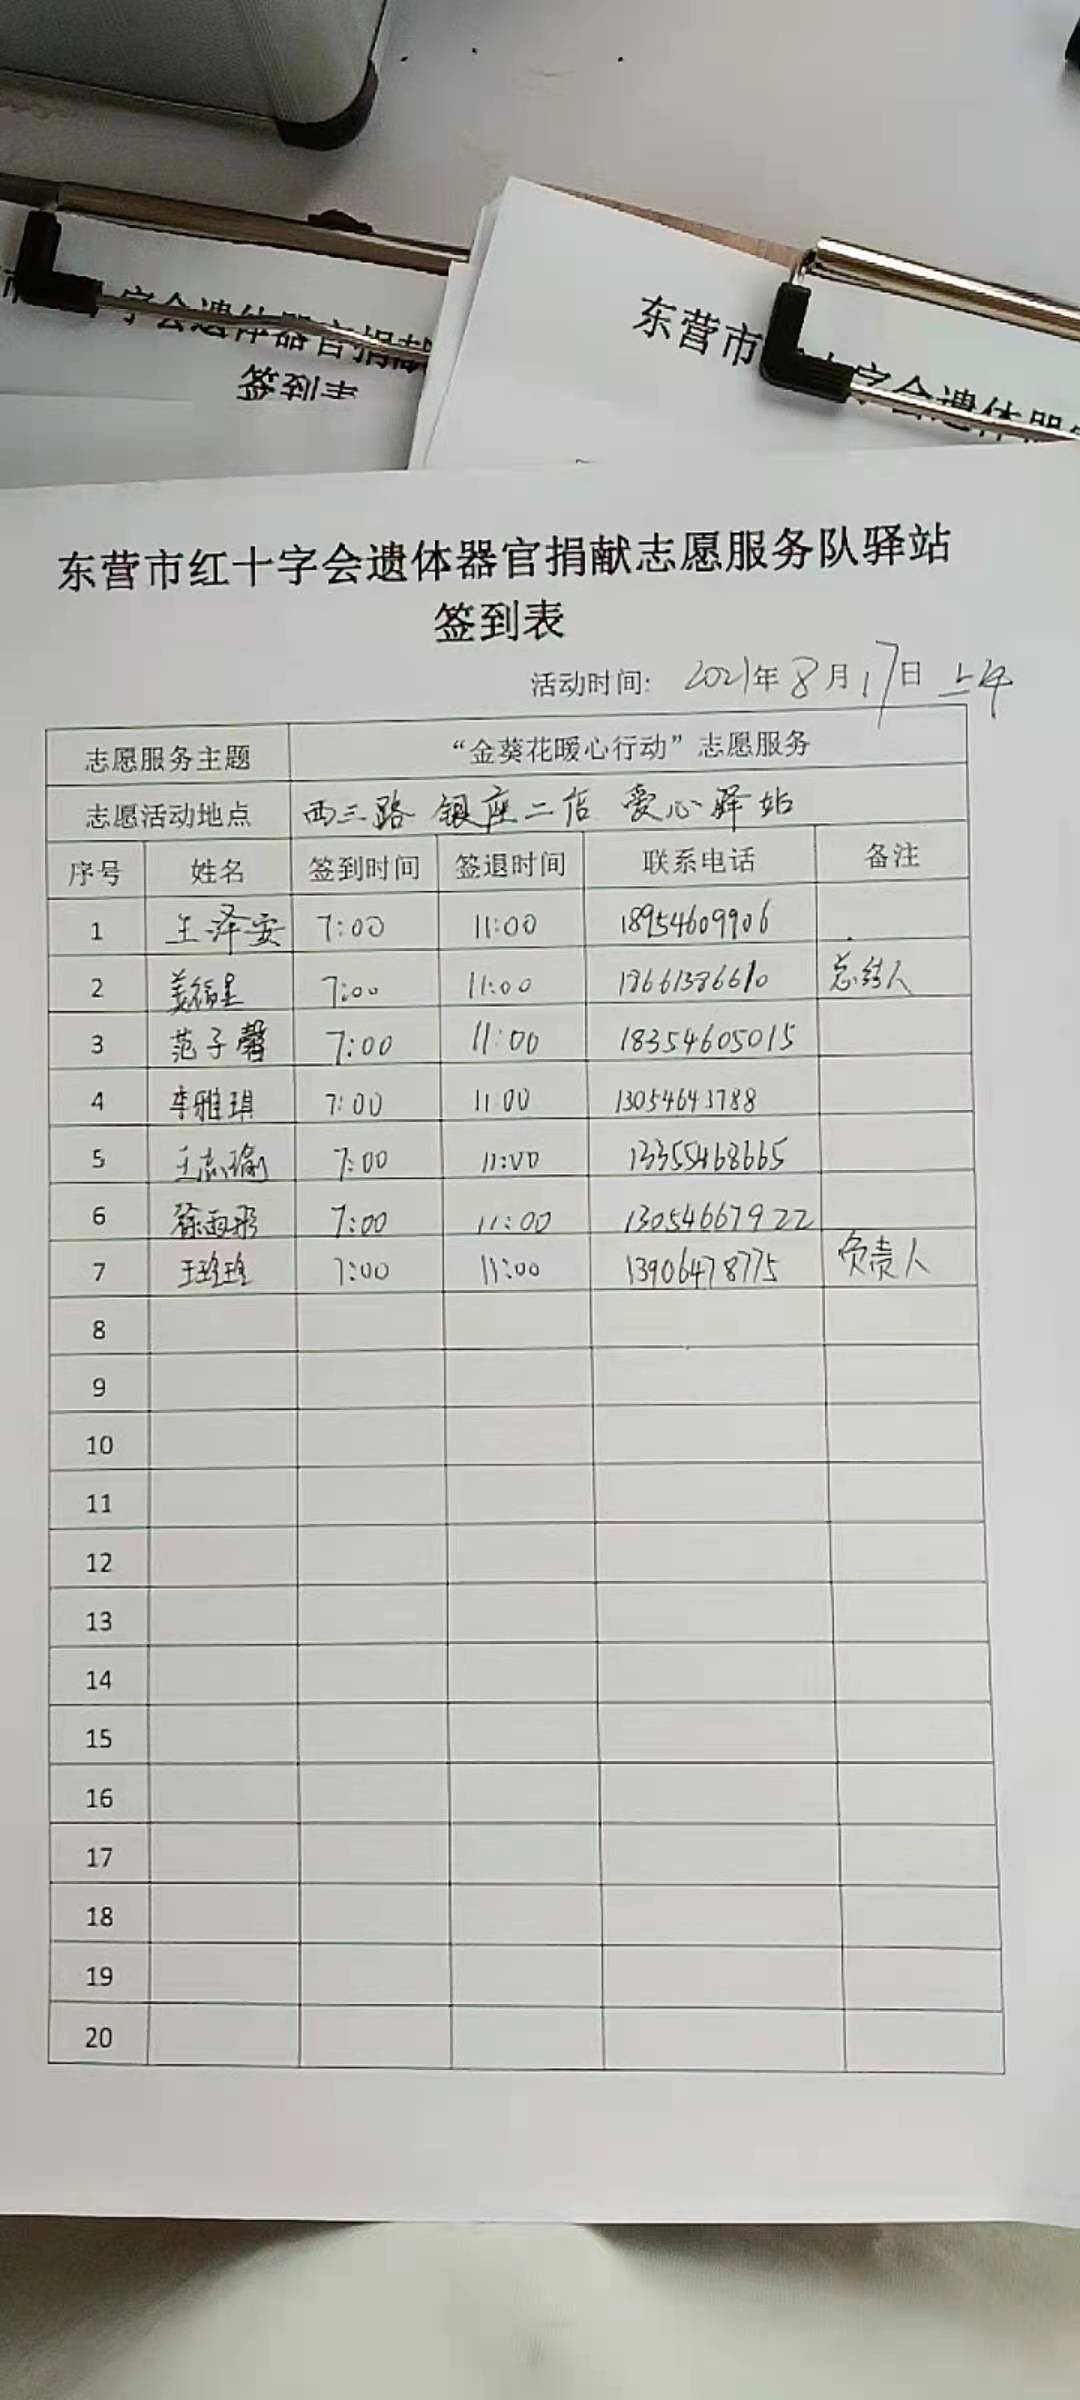 字会遗体器官捐献
签到表
东营市
字会遗体器官
东营市红十字会遗体器官捐献志愿服务队驿站
签到表
活动时间: 2021年8月17日 上午
志愿服务主题 “金葵花暖心行动”志愿服务
志愿活动地点 西三路 银座二店 爱心驿站
序号 姓名 签到时间 签退时间 联系电话 备注
1 王泽安 7:00 11:00 18954609906
2 姜福星 7:00 11:00 18661386610 总结人
3 范子馨 7:00 11:00 18354605015
4 李雅琪 7:00 11:00 13054643788
5 王志瑜 7:00 11:00 13355468665
6 徐雨彤 7:00 11:00 13054667922
7 王玲玲 7:00 11:00 13906478775 负责人
8
9
10
11
12
13
14
15
16
17
18
19
20